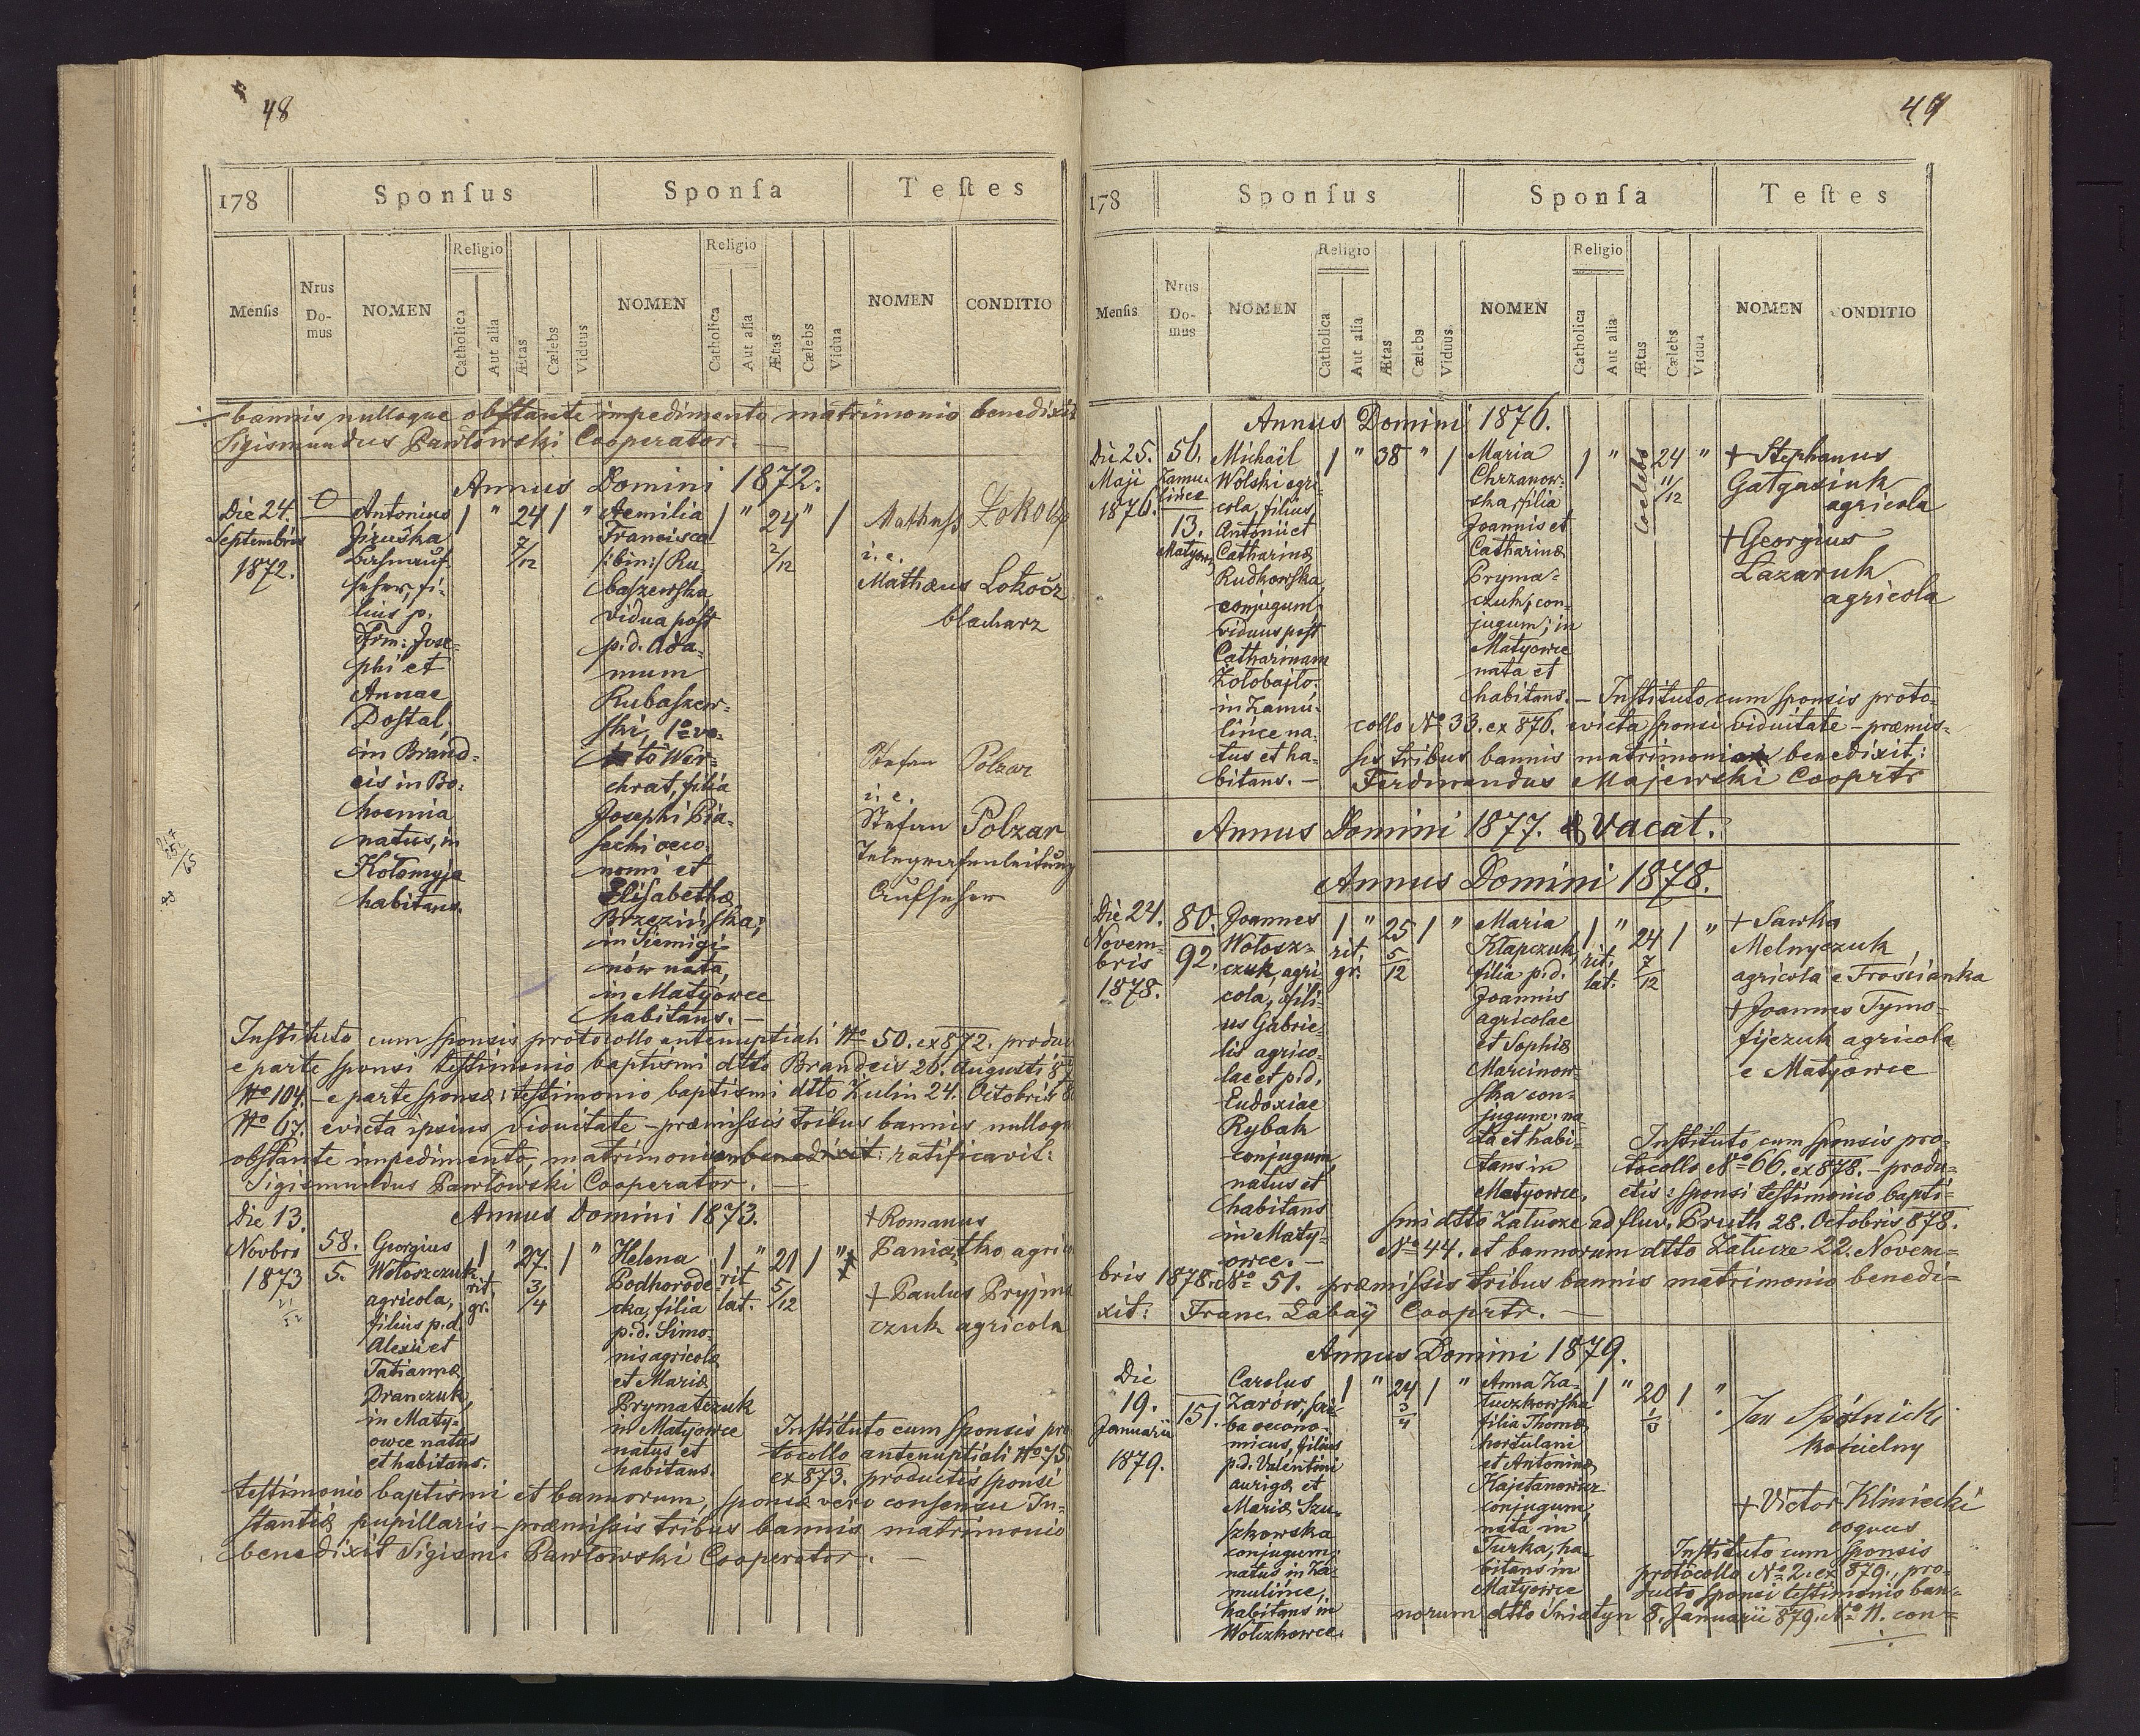 48
178
Sponſus
Sponſa
Teſtes
Menſis
Nrus Do-mus
NOMEN
Religio
Catholica
Aut alia
Ætas
Cælebs
Viduus
NOMEN
Religio
Catholica
Aut alia
Ætas
Cælebs
Vidua
NOMEN
CONDITIO
bannis nulloque obstante impedimento matrimonio benedixit
Sigismundus Pawłowski Cooperator. —
Annus Domini 1872.
Die 24.
Septembris
1872.
Antonius
Jiruška
seher, fi-
lius p.
Jose-
phi et
Annae
Dostal,
in Brand-
eis in Bo-
hoemia
natus, in
Kołomyja
habitans.
1 " 24 1 "
7/12
Aemilia
Francisca
/:bin:/ Ru
baszewska
vidua post
p.d. Ada-
mum
Rubaszew-
ski, 1o vo-
to Wer-
chrat, filia
Josephi Bia-
secki oeco
nomi et
Elisabethæ
Brzezińska;
in Siemigi-
nów nata,
in Matyowce
habitans. —
1 " 24 " 1
2/12
i. e.
Mathæus Lokočz
blacharz
Stefan Polzar
i. e.
Stefan Polzar
Telegrafenleitung
Aufseher
Instituto cum sponsis protocollo antenuptiali No 50. ex 872. produc
e parte sponsi testimonio baptismi dtto Brandeis 26. Augusti 87
No 104. – e parte sponsæ: testimonio baptismi dtto Żulin 24. Octobris 8
No 67. evicta ipsius viduitate – præmissis tribus bannis nulloqu
obstante impedimento, matrimonium benedixit: ratificavit:
Sigismundus Pawłowski Cooperator. —
Annus Domini 1873.
Die 13.
Novbro
1873
58.
5.
Georgius
Wołoszczuk
agricola,
filius p.d.
Alexii et
Tatiannæ
Dranczuk,
in Maty-
owce natus
et habitans.
1 " 27. 1 "
rit.
gr.
3/4
Helena
Podhorode-
cka, filia
p.d. Simo-
nis agricolæ
et Mariæ
Prymatczuk
in Matyowce
natus et
habitans.
1 " 21 1 "
rit
lat.
5/12
+ Romanus
Paniątko agric
+ Paulus Pryjma
czuk agricola
Instituto cum sponsis pro
tocollo antenuptiali No 75.
ex 873. productis sponsi
testimonio baptismi et bannorum, sponsæ vero consensu In-
stantiæ pupillaris – præmissis tribus bannis matrimonio
benedixit Sigism: Pawłowski Cooperator. —
49
178
Sponſus
Sponſa
Teſtes
Menſis
Nrus Do-mus
NOMEN
Religio
Catholica
Aut alia
Ætas
Cælebs
Viduus
NOMEN
Religio
Catholica
Aut alia
Ætas
Cælebs
Vidua
NOMEN
CONDITIO
Annus Domini 1876.
Die 25.
Maji
1876.
56.
Zamu-
lińce
13.
Matyow
Michaël
Wolski agri-
cola, filius
Antonii et
Catharinæ
Rudkowska,
conjugum;
viduus post
Catharinam
Zołobajło;
in Zamu-
lińce na-
tus et ha-
bitans. —
1 " 38 " 1
Maria
Chrzanow-
ska, filia
Joannis et
Catharinæ
Pryma-
czuk, con-
jugum; in
Matyowce
nata et
habitans. –
1 " Coelebs 24 "
11/12
+ Stephanus
Gałgasiuk
agricola
+ Georgius
Łazaruk
agricola
Instituto cum sponsis proto-
collo No 33. ex 876. evicta sponsi viduitate – præmis-
sis tribus bannis matrimonio benedixit:
Ferdinandus Majewski Cooprtr
Annus Domini 1877. Vacat.
Annus Domini 1878.
Die 24.
Novem-
bris
1878.
80.
92.
Joannes
Wołosz-
czuk, agri
cola, fili-
us Gabrie-
lis agrico-
lae et p.d.
Eudoxiae
Rybak
conjugum,
natus et
habitans
in Maty-
owce. —
1 " 25 1 "
rit.
gr.
5/12
Maria
Kłapczuk,
filia p.d.
Joannis
agricolae
et Sophiæ
Marcinow-
ska con-
jugum; na
ta et habi-
tans in
Matyowce.
1 " 24 1 "
rit.
lat.
7/12
+ Sawka
Melnyczuk
agricola e Trościanka
+ Joannes Tymo-
fijczuk agricola
e Matyowce
Instituto cum sponsis pro-
tocollo No 66. ex 878. – produ-
ctis: sponsi testimonio bapti-
smi dtto Załucze ad fluv. Pruth 28. Octobris 878.
No 44. et bannorum dtto Załucze 22. Novem-
bris 1878. No 51. præmissis tribus bannis matrimonio benedi-
xit: Franc. Łabay Cooprtr. —
Annus Domini 1879.
Die
19.
Januarii
1879.
151.
Carolus
Zarów, scri
ba oecono-
micus, filius
p.d. Valentini
aurigæ et
Mariæ Szu-
szkowska
conjugum;
natus in Za-
mulińce,
habitans in
Wołczkowce.
1 " 24 1 "
3/4
Anna Za-
łuczkowska
filia Thomæ
hortulani
et Antoninæ
Kajetanowicz
conjugum,
nata in
Turka, ha-
bitans in
Matyowce
1 " 20 1 "
Jan Spólnicki
kościelny
+ Victor Kliniecki
coquus
Instituto cum sponsis
protocollo No 2. ex 879., pro-
ducto sponsi testimonio ban-
norum dtto Śniatyn 8. Januarii 879. No 11. con-